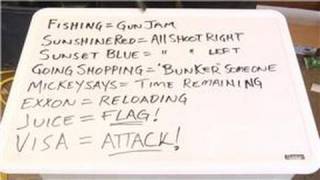 FISHING = GUN JAM
SUNSHINE RED = All SHOOT RIGHT
SUNSET BLUE = " " LEFT
GOING SHOPPING = "BUNKER" SOMEONE
MICKEY SAYS = TIME REMAINING
EXXON = RELOADING
JUICE = FLAG!
VISA = ATTACK!